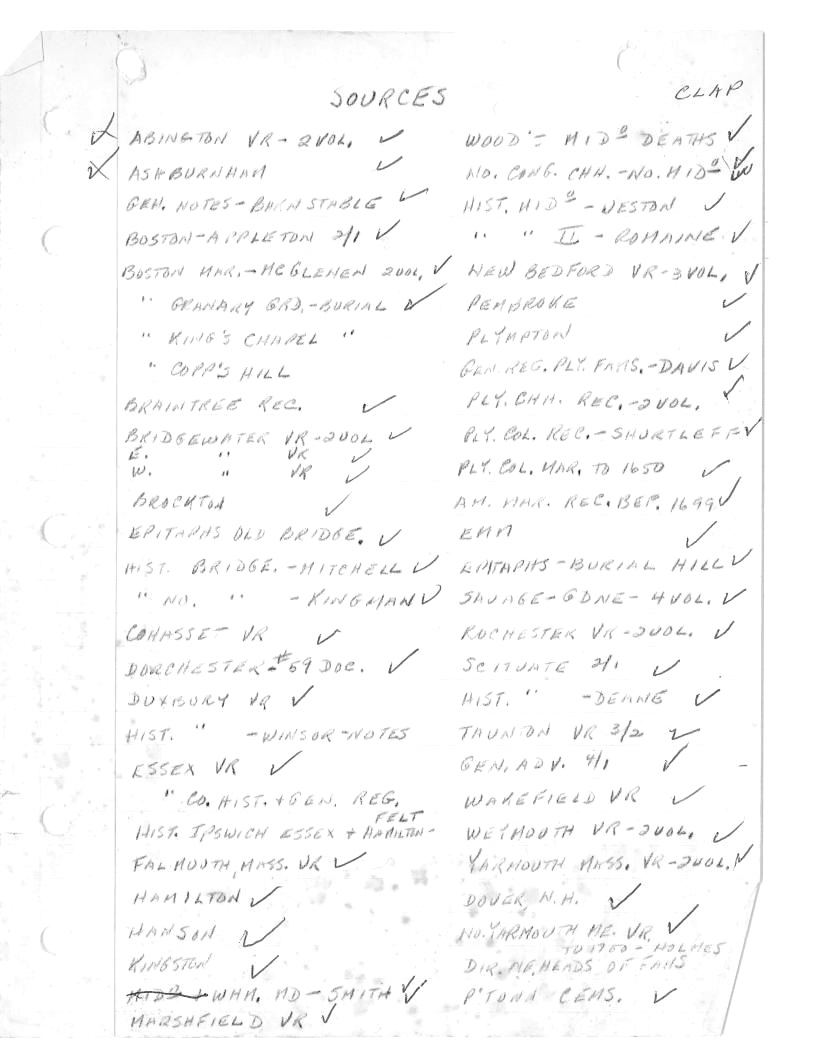 SOURCES
CLAP
ABINGTON VR - 2 VOL. ✓
ASHBURNHAM ✓
GEN. NOTES - BARNSTABLE ✓
BOSTON - APPLETON 2/1 ✓
BOSTON MAR. - McGLENEN 2 VOL. ✓
" GRANARY GRD. - BURIAL ✓
" KING'S CHAPEL "
" COPP'S HILL
BRAINTREE REC. ✓
BRIDGEWATER VR - 2 VOL ✓
E. " VR ✓
W. " VR ✓
BROCKTON ✓
EPITAPHS OLD BRIDGE. ✓
HIST. BRIDGE. - MITCHELL ✓
" NO. " - KINGMAN ✓
COHASSET VR ✓
DORCHESTER - #59 DOC. ✓
DUXBURY VR ✓
HIST. " - WINSOR - NOTES
ESSEX VR ✓
" CO. HIST. + GEN. REG.
HIST. IPSWICH ESSEX + HAMILTON - FELT
FALMOUTH, MASS. VR ✓
HAMILTON ✓
HANSON ✓
KINGSTON ✓
WHM. MD - SMITH ✓
MARSHFIELD VR ✓
WOOD'S MIDº DEATHS ✓
NO. CONG. CHH. - NO. MIDº ✓
HIST. MIDº - WESTON ✓
" " II - ROMAINE ✓
NEW BEDFORD VR - 3 VOL. ✓
PEMBROKE ✓
PLYMPTON ✓
GEN. REG. PLY. FAMS. - DAVIS ✓
PLY. CHH. REC. - 2 VOL. ✓
PLY. COL. REC. - SHURTLEFF ✓
PLY. COL. MAR. TO 1650 ✓
AM. MAR. REC. BEF. 1699 ✓
EMM ✓
EPITAPHS - BURIAL HILL ✓
SAVAGE - GDNE - 4 VOL. ✓
ROCHESTER VR - 2 VOL. ✓
SCITUATE 2/1 ✓
HIST. " - DEANE ✓
TAUNTON VR 3/2 ✓
GEN. ADV. 4/1 ✓
WAKEFIELD VR ✓
WEYMOUTH VR - 2 VOL. ✓
YARMOUTH MASS. VR - 2 VOL. ✓
DOVER, N.H. ✓
NO. YARMOUTH ME. VR ✓
TO 1780 - HOLMES
DIR. ME. HEADS OF FAMS
P'TOWN CEMS. ✓